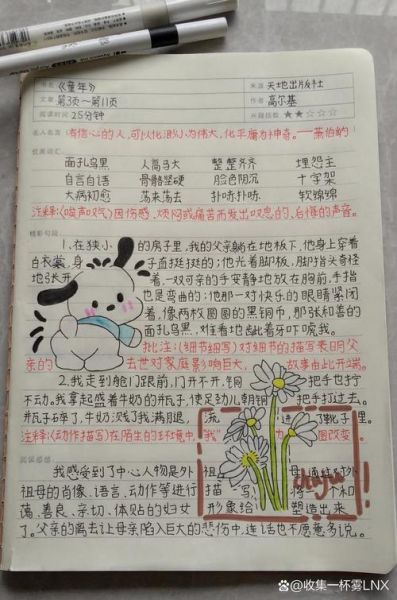 书名 《童年》 来源 天地出版社
文章 第3页~第11页 作者 高尔基
阅读时间 25分钟 兴趣指数 ★★☆☆☆
名人名言 有信心的人,可以化渺小为伟大,化平庸为神奇。——萧伯纳
优美词汇
面孔乌黑 人高马大 整整齐齐 埋怨主
自言自语 骨骼坚硬 脸色阴沉 十字架
大病初愈 荡来荡去 扑哧扑哧 软绵绵
注释:(唉声叹气)因伤感、烦闷或痛苦而发出叹息的声音。
精彩句段
1.在狭小 的房子里,我的父亲躺在地板下,他身上穿着
白衣裳,身 子直挺挺的;他光着脚板,脚指头奇怪
地张开 着,一双可亲的手安静地放在胸前,手指
也是弯曲的;他那一对快乐的眼睛紧闭
着,像两枚圆圆的黑铜币,那张和善的
面孔乌黑,难看地龇着牙吓唬我。
批注:(细节描写)对细节的描写表明父
亲的 去世对家庭影响巨大, 故事由此开端。
2.我走到舱门跟前,门开不开,铜 把手也拧
不动。我拿起盛着牛奶的瓶子,使足劲儿朝铜 把手打过去。
瓶子碎了,牛奶浇了我满腿, 流 进了靴子里。
注释:(动作描写)在陌生的环境中,"我" 力 图改变。
阅读感想
我感受到了中心人物是外 祖 母 通过对外
祖母的肖像、语言、动作等进行 描 写 将一个和
蔼、善良、亲切、体贴的妇女 形象给 塑造出来
了。父亲的离去让母亲陷入巨大的悲伤中,连话也不愿意多说。
@收集一杯雾LNX